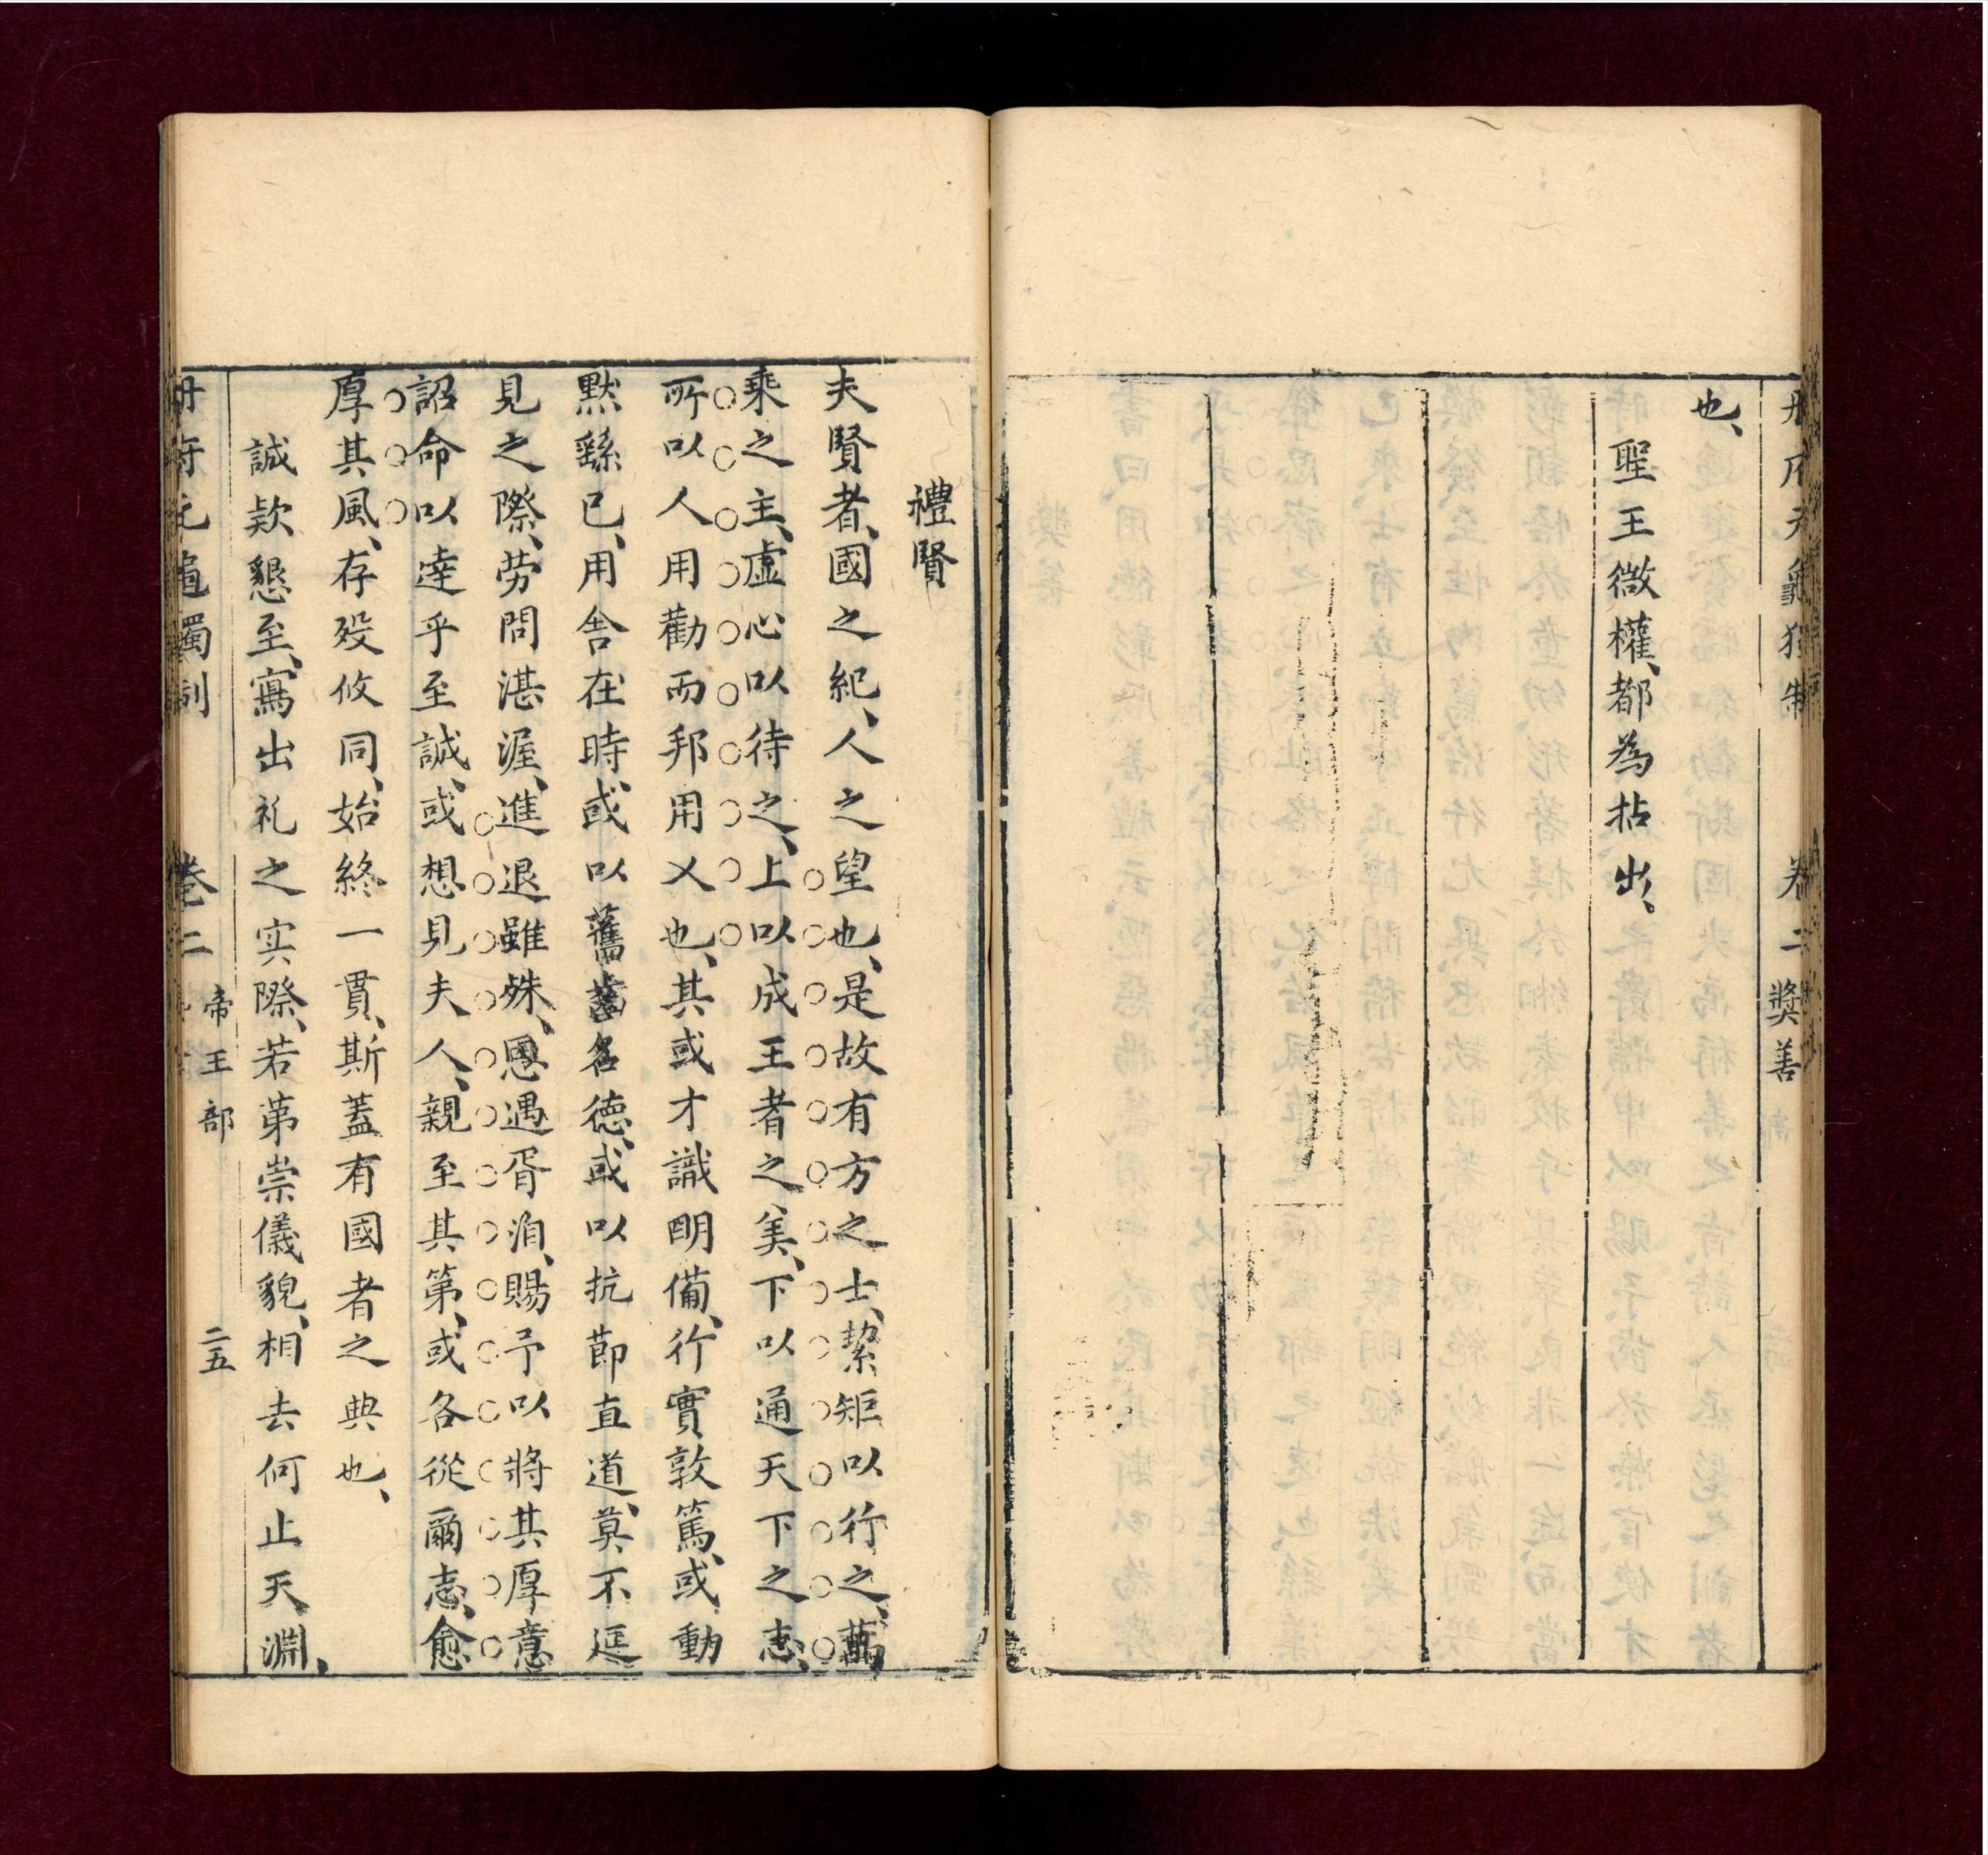 冊府元龜獨制 卷二 獎善
也、
聖王微權、都為拈出、
禮賢
夫賢者、國之紀、人之望也、是故有方之士、絜矩以行之、萬
乘之主、虛心以待之、上以成王者之美、下以通天下之志、
所以人用勸而邦用乂也、其或才識明備、行實敦篤、或動
默繇已、用舍在時、或以舊齒名德、或以抗節直道、莫不延
見之際、勞問湛渥、進退雖殊、恩遇胥洎、賜予以將其厚意
詔命以達乎至誠、或想見夫人、親至其第、或各從爾志、愈
厚其風、存歿攸同、始終一貫、斯蓋有國者之典也、
誠欵懇至、寫出礼之实際、若第崇儀貌、相去何止天淵、
冊府元龜獨制 卷二 帝王部 二五